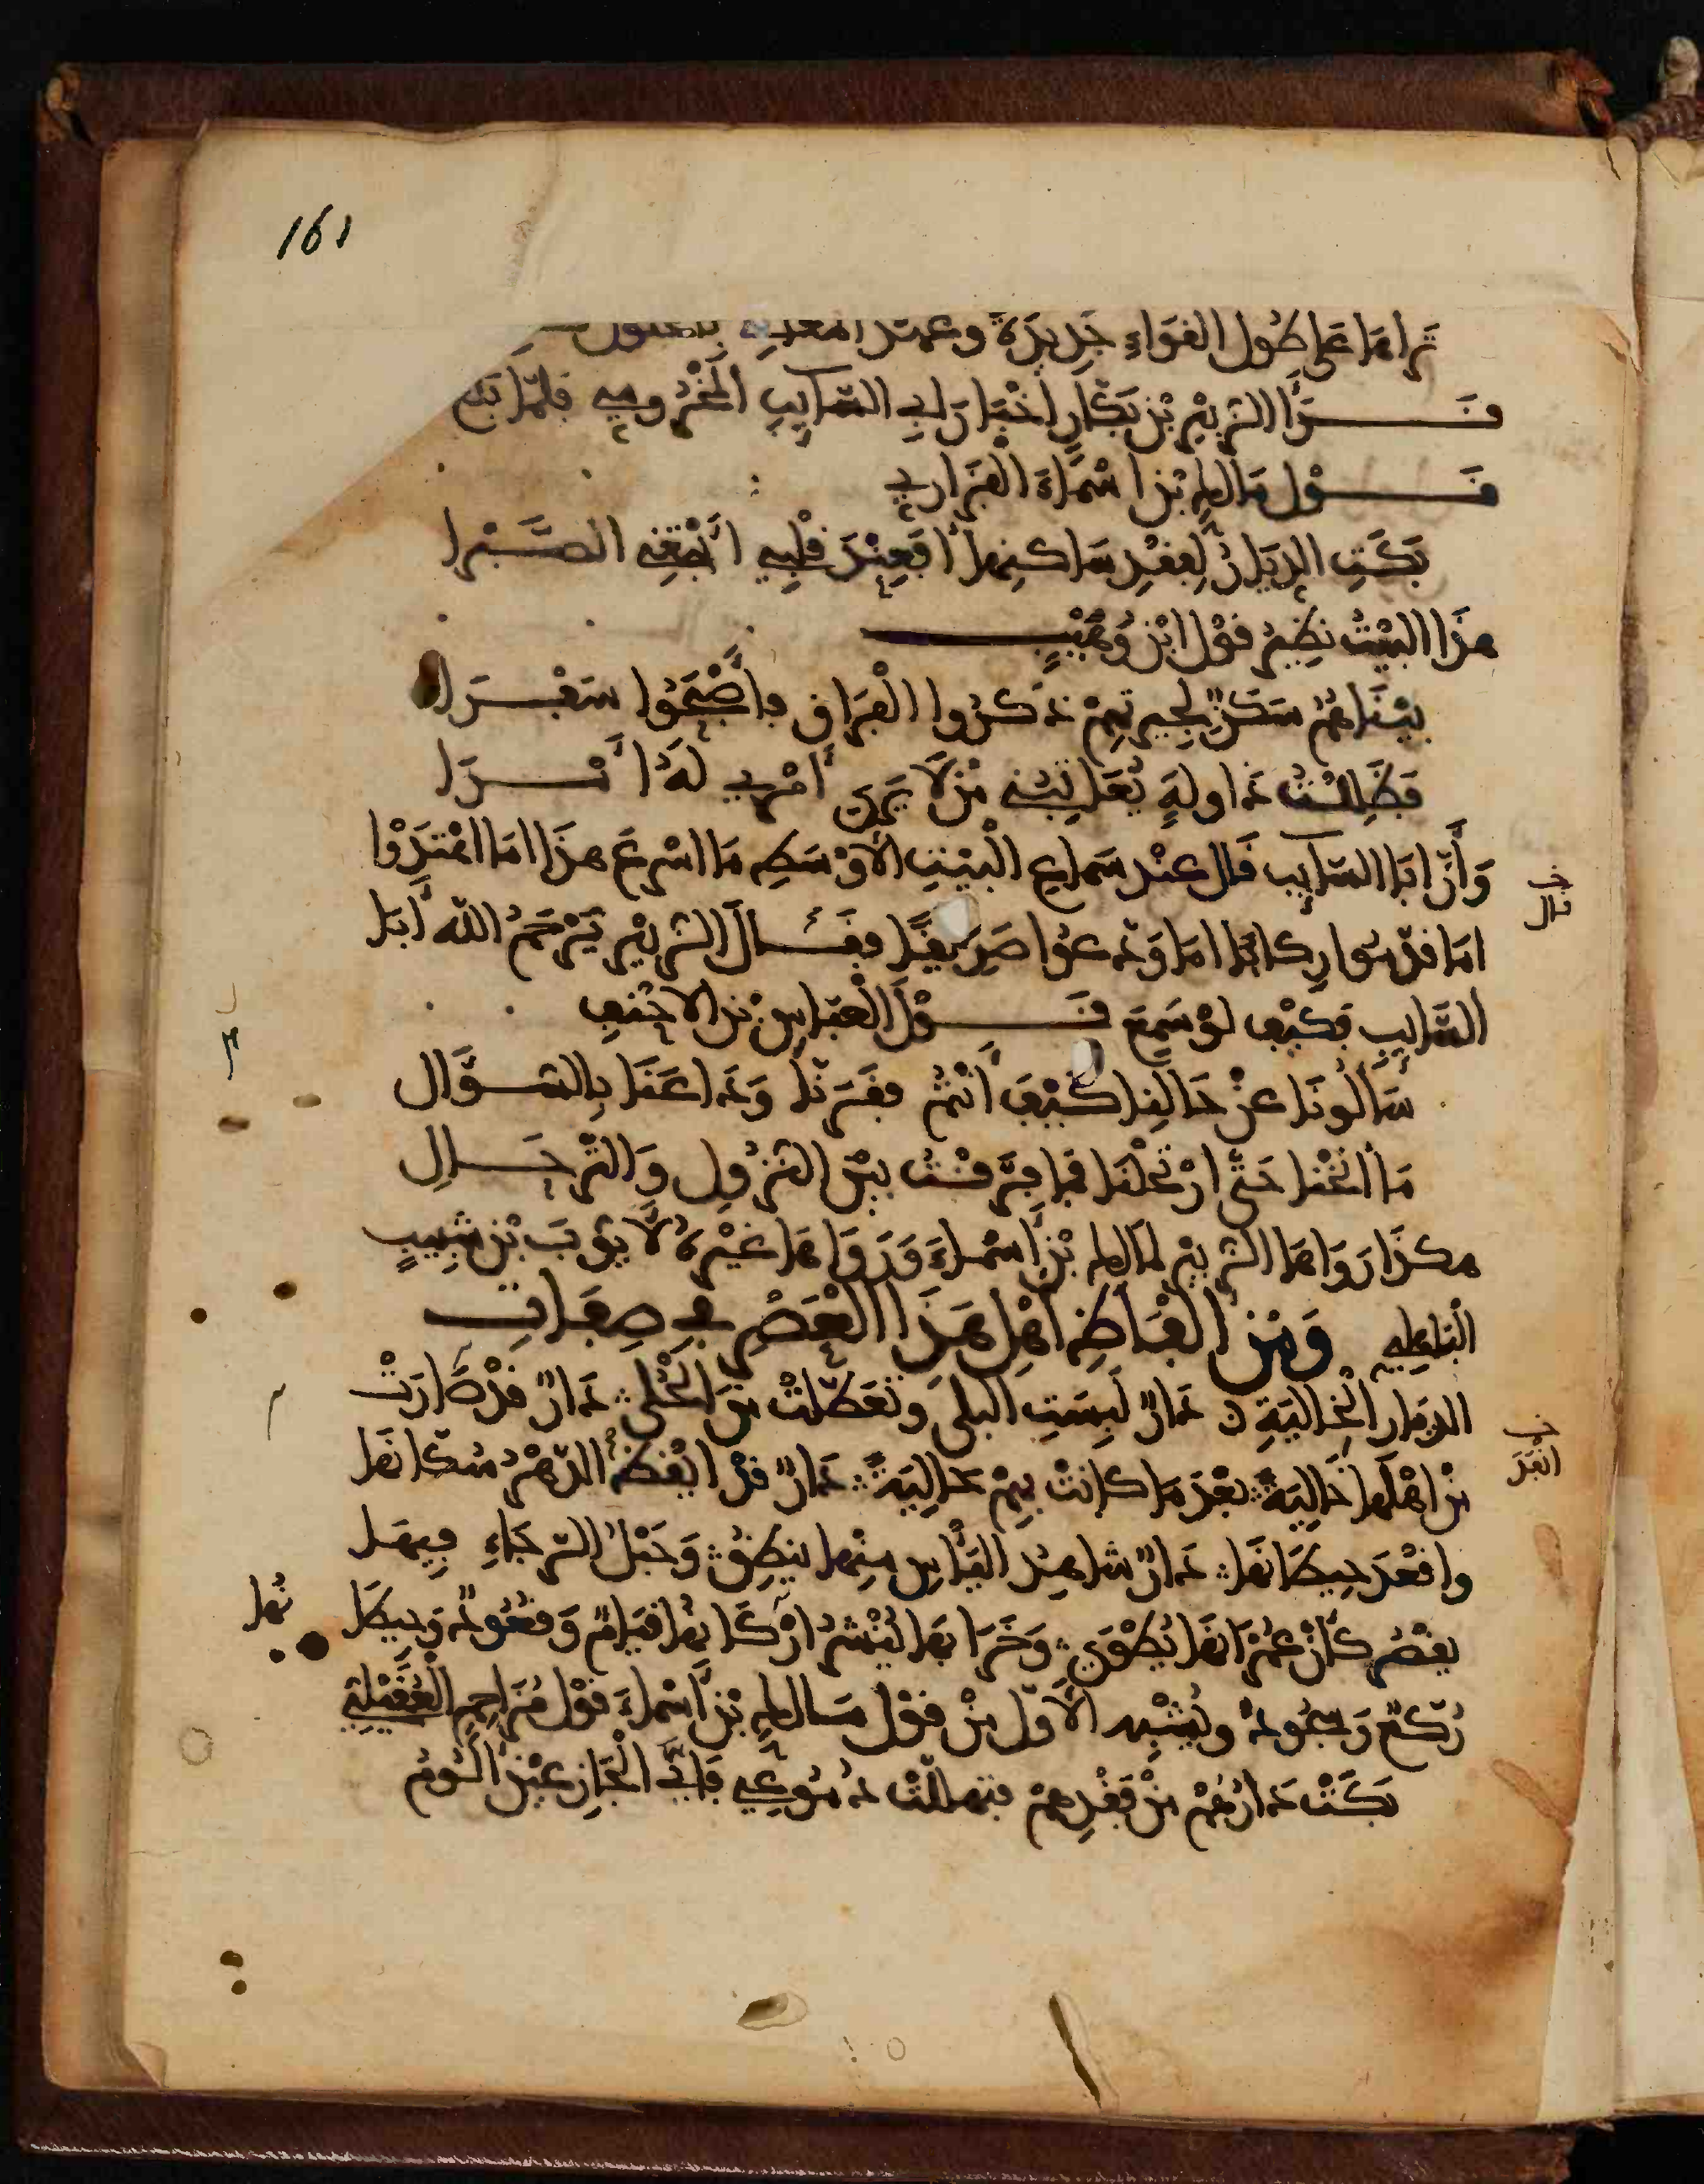 161
تراها على طول القواء جديدة وعهد المغاني بالحلول
قرأ الزبير بن بكار اخبار ابي السايب المخزومي فلما بلغ
قول مالك بن اسماء الفزاري
بكت الديار لفقد ساكنها أفعند قلبي أبتغي الصبرا
هذا البيت نظير قول ابن وهيب
بينا هم سكن لجيرتهم ذكروا الفراق فأصبحوا سفرا
فظللت ذا وله يعاتبني من لا يرى أمري له أمرا
وأن ابا السايب قال عند سماع البيت الأوسط ما اسرع هذا اما اهتدوا
خ
نال
اما قدموا ركابا اما ودعوا صديقا فقال الزبير يرحم الله أبا
السايب فكيف لو سمع قول العباس بن الاحنف
سألونا عن حالنا كيف أنتم فقرنا وداعنا بالسؤال
ما أنخنا حتى ارتحلنا فما فرقت بين النزول والترحال
هكذا رواها الزبير لمالك بن أسماء ورواها غيره لأيوب بن شبيب
الباطلي ومن الفاظ اهل هذا العصر في صفات
الديار الخالية دار لبست البلى وتعطلت من الحلى دار قد صارت
من اهلها خالية بعد ما كانت بهم حالية دار قد انفض الدهر سكانها
خ
انفد
واقعد حيطانها دار شاهد اليأس منها ينطق وحبل الرجاء فيها
يقصر كأن عمرانها يطوى وخرابها ينشر اركانها قيام وقعود وحيطا نها
ركع وسجود ويشبه الأول من قول مالك بن أسماء قول مزاحم العقيلي
بكت دارهم من فقدهم فتهللت دموعي فأي الجازعين ألوم